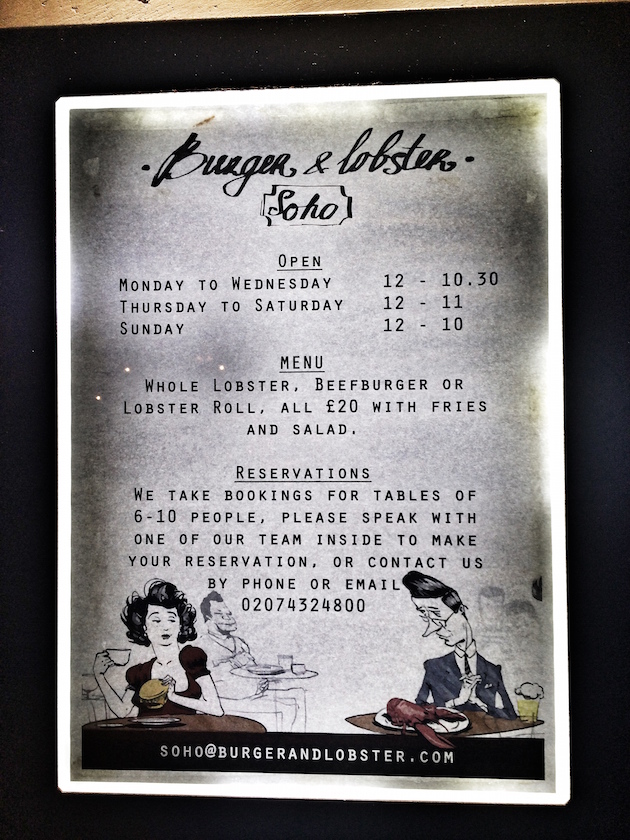 · Burger & lobster ·
Soho
OPEN
MONDAY TO WEDNESDAY 12 - 10.30
THURSDAY TO SATURDAY 12 - 11
SUNDAY 12 - 10
MENU
WHOLE LOBSTER, BEEFBURGER OR
LOBSTER ROLL, ALL £20 WITH FRIES
AND SALAD.
RESERVATIONS
WE TAKE BOOKINGS FOR TABLES OF
6-10 PEOPLE, PLEASE SPEAK WITH
ONE OF OUR TEAM INSIDE TO MAKE
YOUR RESERVATION, OR CONTACT US
BY PHONE OR EMAIL
02074324800
SOHO@BURGERANDLOBSTER.COM